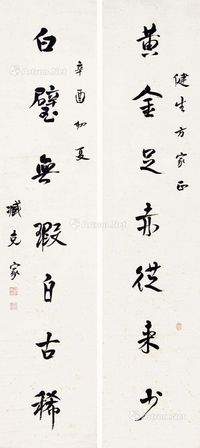 健生方家正
黄金足赤從来少
白璧無瑕自古稀
辛酉初夏
臧克家